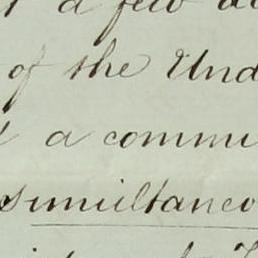 a few
of the Und
a commu
simultaneo